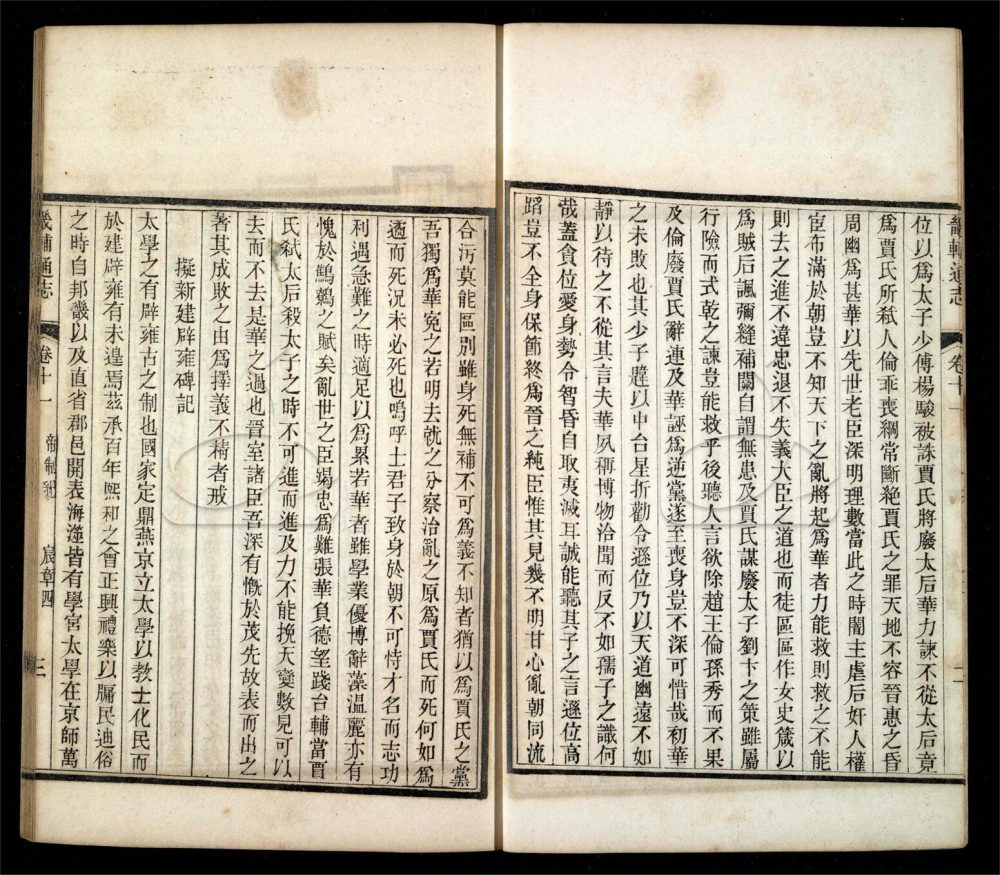 畿輔通志 卷十一 二
位以爲太子少傅楊駿被誅賈氏將廢太后華力諫不從太后竟
爲賈氏所弒人倫乖喪綱常斷絶賈氏之罪天地不容晉惠之昏
周幽爲甚華以先世老臣深明理數當此之時闇主虐后奸人權
宦布滿於朝豈不知天下之亂將起爲華者力能救則救之不能
則去之進不違忠退不失義大臣之道也而徒區區作女史箴以
爲賊后諷彌縫補闕自謂無患及賈氏謀廢太子劉卞之策雖屬
行險而式乾之諫豈能救乎後聽人言欲除趙王倫孫秀而不果
及倫廢賈氏辭連及華誣爲逆黨遂至喪身豈不深可惜哉初華
之未敗也其少子韙以中台星折勸令遜位乃以天道幽遠不如
靜以待之不從其言夫華夙稱博物洽聞而反不如孺子之識何
哉蓋貪位愛身勢令智昏自取夷滅耳誠能聽其子之言遜位高
蹈豈不全身保節終爲晉之純臣惟其見幾不明甘心亂朝同流
合汚莫能區別雖身死無補不可爲義不知者猶以爲賈氏之黨
吾獨爲華寃之若明去就之分察治亂之原爲賈氏而死何如爲
遹而死況未必死也嗚呼士君子致身於朝不可恃才名而志功
利遇急難之時適足以爲累若華者雖學業優博辭藻温麗亦有
愧於鷦鷯之賦矣亂世之臣竭忠爲難張華負德望踐台輔當賈
氏弒太后殺太子之時不可進而進及力不能挽天變數見可以
去而不去是華之過也晉室諸臣吾深有慨於茂先故表而出之
著其成敗之由爲擇義不精者戒
擬新建辟雍碑記
太學之有辟雍古之制也國家定鼎燕京立太學以教士化民而
於建辟雍有未遑焉茲承百年熙和之會正興禮樂以牖民迪俗
之時自邦畿以及直省郡邑開表海澨皆有學宮太學在京師萬
畿輔通志 卷十一 帝制紀 宸章四 三